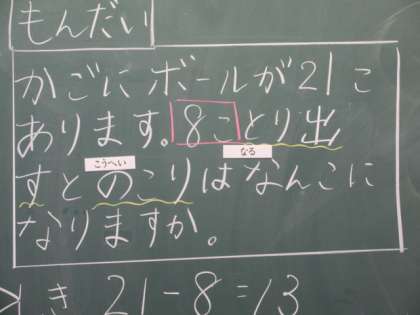 もんだい
かごにボールが21こ
あります。8ことり出
すとのこりはなんこに
なりますか。
こうへい
なる
しき 21-8=13